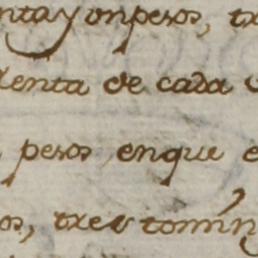 ntay un pesos, tr
denta de cada
pesos en que e
os, tres tomin